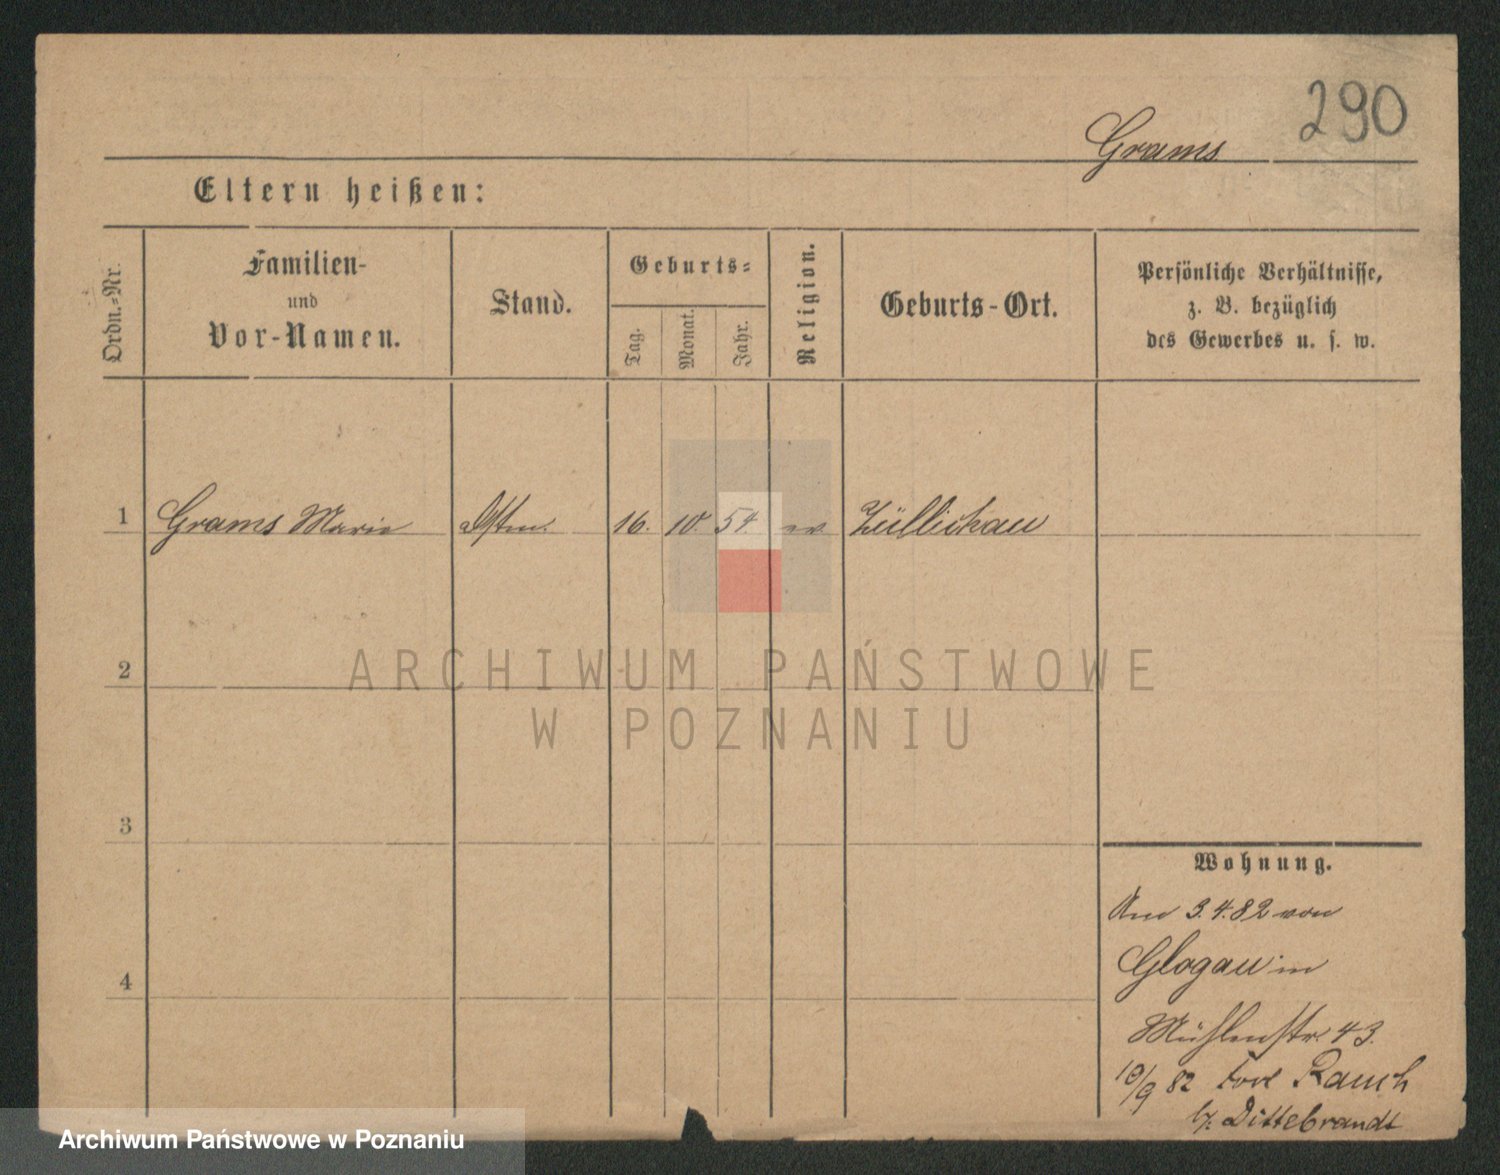 290
Grams
Eltern heißen:
Ordn.-Nr.
Familien-
und
Vor-Namen.
Stand.
Geburts-
Tag.
Monat.
Jahr.
Religion.
Geburts-Ort.
Persönliche Verhältnisse,
z. B. bezüglich
des Gewerbes u. s. w.
1 Grams Marie 16. 10. 54. ev. Züllichau
2
ARCHIWUM PAŃSTWOWE
W POZNANIU
3
4
Wohnung.
3.4.82 von
Glogau in
Mühlenstr. 43.
10/9 82 Rauch
b/. Dittebrandt
Archiwum Państwowe w Poznaniu